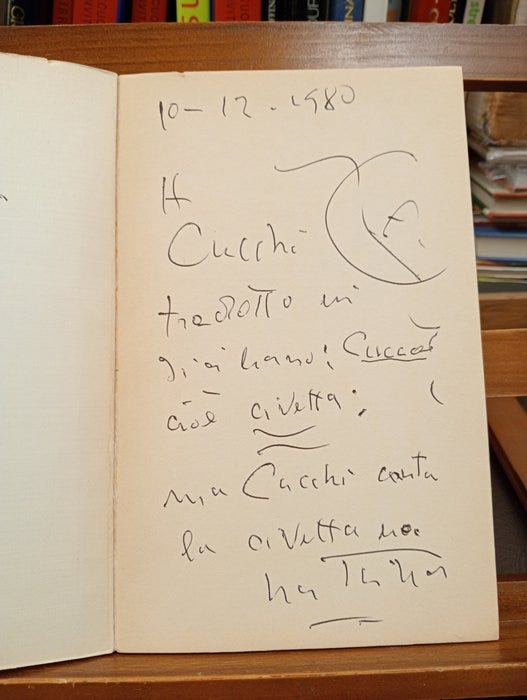 10-12.1980
A
Cucchi
tradotto in
siciliano:
cioè civetta;
ma Cucchi canta
la civetta non
ha